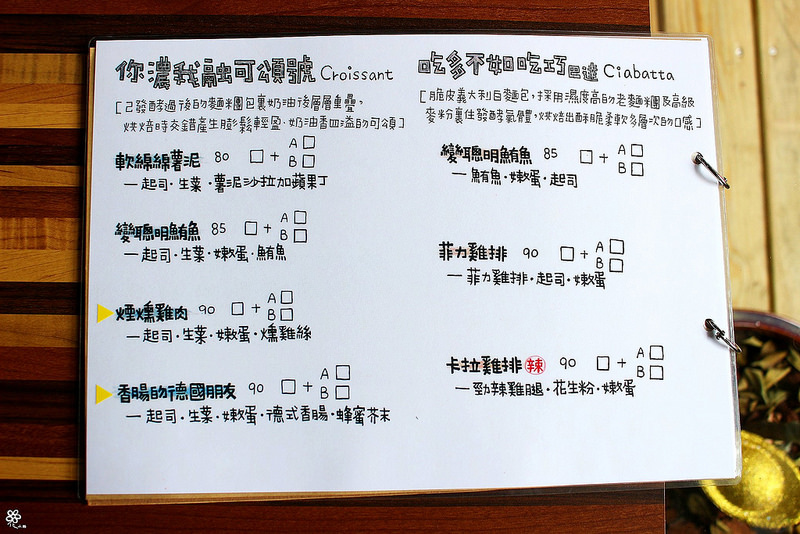 你濃我融可頌號 Croissant
[已發酵過後的麵糰包裹奶油後層層重疊,
烘焙時交錯產生膨鬆輕盈.奶油香四溢的可頌]
軟綿綿薯泥 80 □ + A □
B □
—起司.生菜.薯泥沙拉加蘋果丁
變聰明鮪魚 85 □ + A □
B □
—起司.生菜.嫩蛋.鮪魚
煙燻雞肉 90 □ + A □
B □
—起司.生菜.嫩蛋.燻雞絲
香腸的德國朋友 90 □ + A □
B □
—起司.生菜.嫩蛋.德式香腸.蜂蜜芥末
吃多不如吃巧巴達 Ciabatta
[脆皮義大利白麵包,採用濕度高的老麵糰及高級
麥粉裹住發酵氣體,烘焙出酥脆柔軟多層次的口感]
變聰明鮪魚 85 □ + A □
B □
—鮪魚.嫩蛋.起司
菲力雞排 90 □ + A □
B □
—菲力雞排.起司.嫩蛋
卡拉雞排 辣 90 □ + A □
B □
—勁辣雞腿.花生粉.嫩蛋